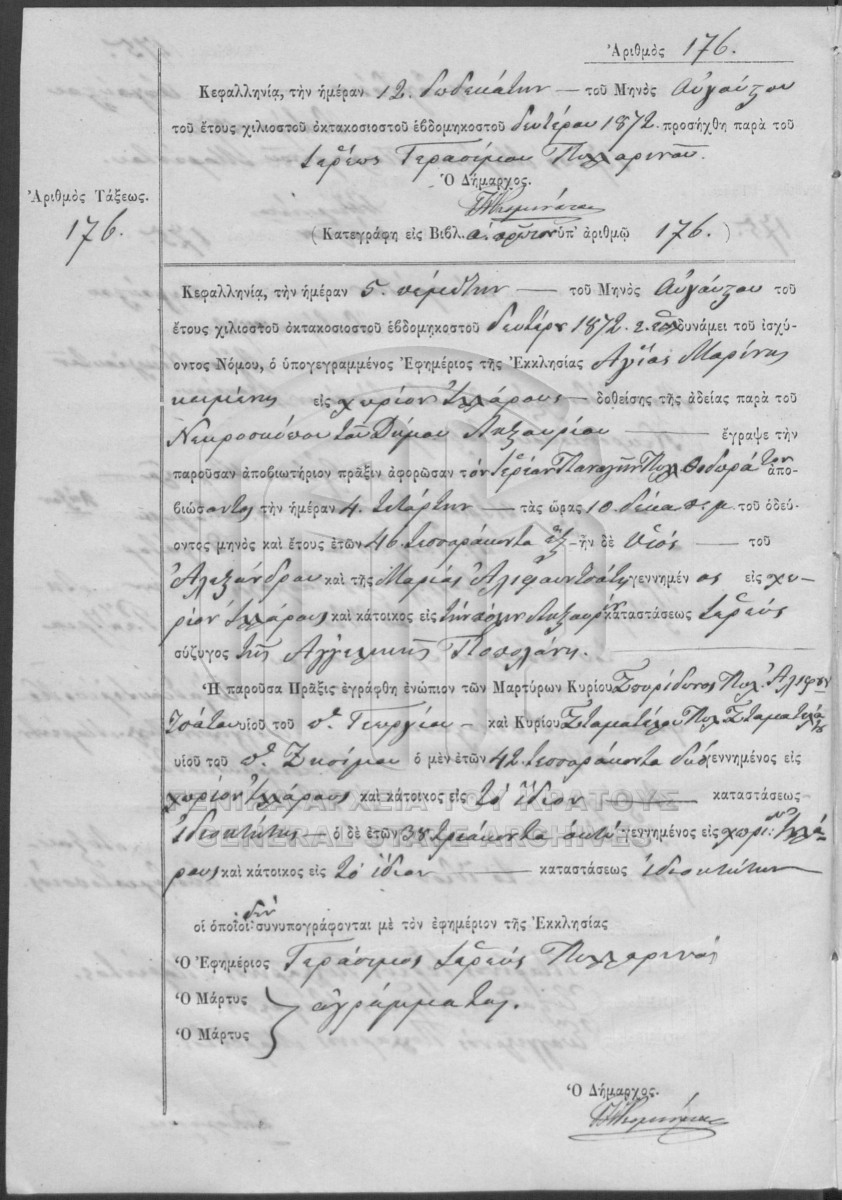 Ἀριθμὸς 176.
Κεφαλληνίᾳ, τὴν ἡμέραν 12. δωδεκάτην — τοῦ Μηνὸς Αὐγούστου
τοῦ ἔτους χιλιοστοῦ ὀκτακοσιοστοῦ ἑβδομηκοστοῦ δευτέρου 1872. προσήχθη παρὰ τοῦ
Ἱερέως Γερασίμου
Ὁ Δήμαρχος.
Ἀριθμὸς Τάξεως.
176.
( Κατεγράφη εἰς Βιβλ. α. πρῶτον ὑπ' ἀριθμῷ 176. )
Κεφαλληνίᾳ, τὴν ἡμέραν 5. πέμπτην — τοῦ Μηνὸς Αὐγούστου τοῦ
ἔτους χιλιοστοῦ ὀκτακοσιοστοῦ ἑβδομηκοστοῦ δευτέρου 1872 δυνάμει τοῦ ἰσχύ-
οντος Νόμου, ὁ ὑπογεγραμμένος Ἐφημέριος τῆς Ἐκκλησίας Ἁγίας Μαρίνης
κειμένης εἰς χωρίον — δοθείσης τῆς ἀδείας παρὰ τοῦ
Νεκροσκόπου τοῦ Δήμου Ληξουρίου — ἔγραψε τὴν
παροῦσαν ἀποβιωτήριον πρᾶξιν ἀφορῶσαν τὸν ἀπο-
βιώσαντος τὴν ἡμέραν 4. τετάρτην — τὰς ὥρας 10. δέκα π.μ. τοῦ ὁδεύ-
οντος μηνὸς καὶ ἔτους ἐτῶν 46 τεσσαράκοντα ἓξ — ἦν δὲ υἱὸς — τοῦ
Ἀλεξάνδρου καὶ τῆς Μαρίας γεννημένος εἰς χω-
ρίον καὶ κάτοικος εἰς τὴν πόλιν Ληξουρίου καταστάσεως Ἱερεὺς
σύζυγος τῆς Ἀγγελικῆς
Ἡ παροῦσα Πρᾶξις ἐγράφθη ἐνώπιον τῶν Μαρτύρων Κυρίου Σπυρίδωνος
υἱοῦ τοῦ Γεωργίου — καὶ Κυρίου
υἱοῦ τοῦ Ζησίμου ὁ μὲν ἐτῶν 42 τεσσαράκοντα δύο γεννημένος εἰς
χωρίον καὶ κάτοικος εἰς τὸ ἴδιον — καταστάσεως
ἰδιοκτήτης — ὁ δὲ ἐτῶν 38 τριάκοντα ὀκτὼ γεννημένος εἰς
καὶ κάτοικος εἰς τὸ ἴδιον — καταστάσεως ἰδιοκτήτην —
οἱ ὁποῖοι δὲν συνυπογράφονται μὲ τὸν ἐφημέριον τῆς Ἐκκλησίας
Ὁ Ἐφημέριος Γεράσιμος Ἱερεὺς
Ὁ Μάρτυς
ἀγράμματοι.
Ὁ Μάρτυς
Ὁ Δήμαρχος.
ΓΕΝΙΚΑ ΑΡΧΕΙΑ ΤΟΥ ΚΡΑΤΟΥΣ
GENERAL STATE ARCHIVES